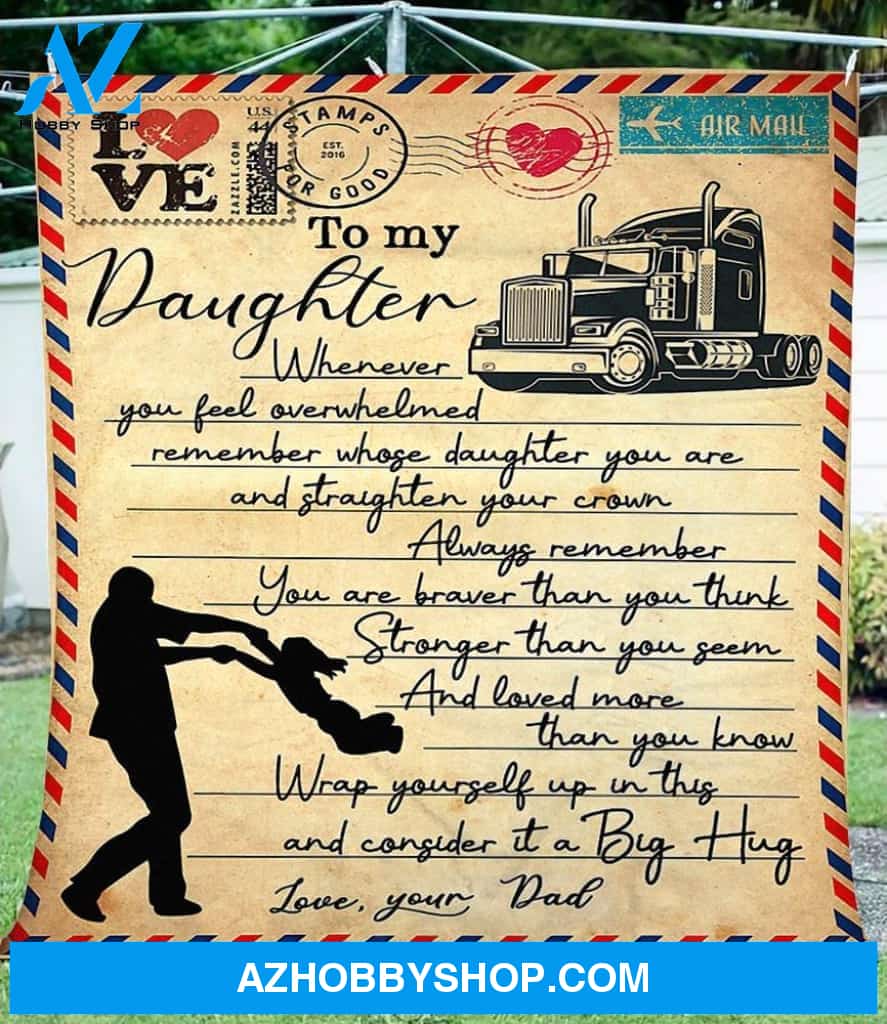 AZ
HOBBY SHOP
LOVE
U.S.
44
ZAZZLE.COM
STAMPS
EST.
2016
FOR GOOD
AIR MAIL
To my
Daughter
Whenever
you feel overwhelmed
remember whose daughter you are
and straighten your crown
Always remember
You are braver than you think
Stronger than you seem
And loved more
than you know
Wrap yourself up in this
and consider it a Big Hug
Love, your Dad
AZHOBBYSHOP.COM